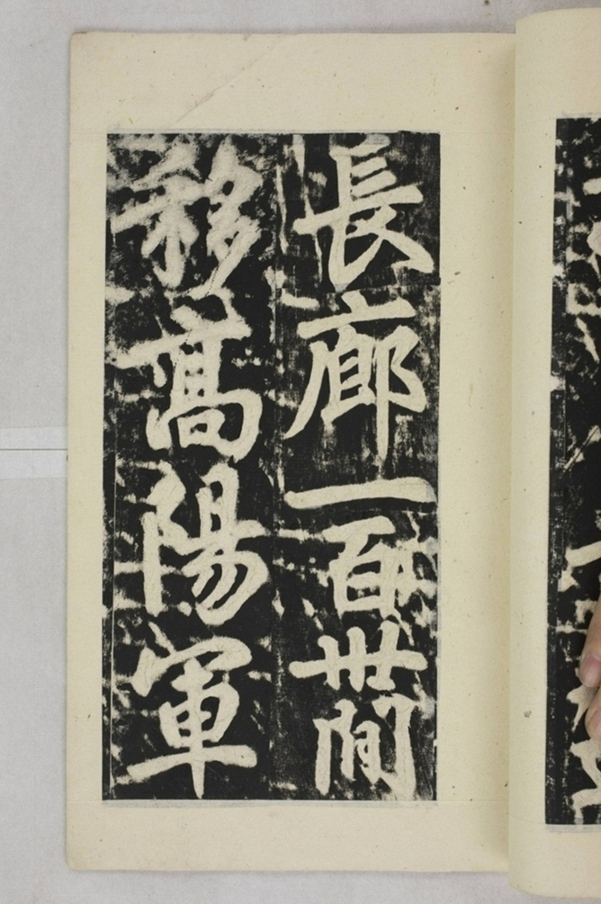 長廊一百卌間
移髙陽軍